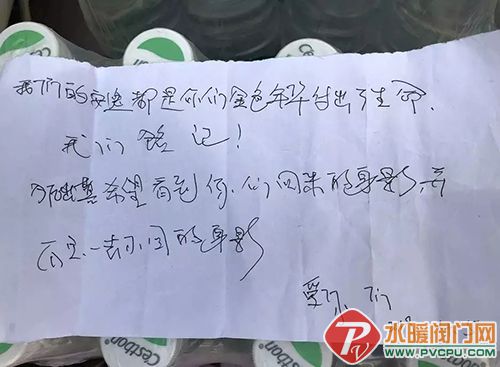 Cestbon
我们的安逸都是你们金色年华付出了生命.
我们铭记!
希望看到你.们回来的身影,而
不是一去不回的身影
爱你们
水暖阀门网
WWW.PVCPU.COM
Cestbon
Cestbon